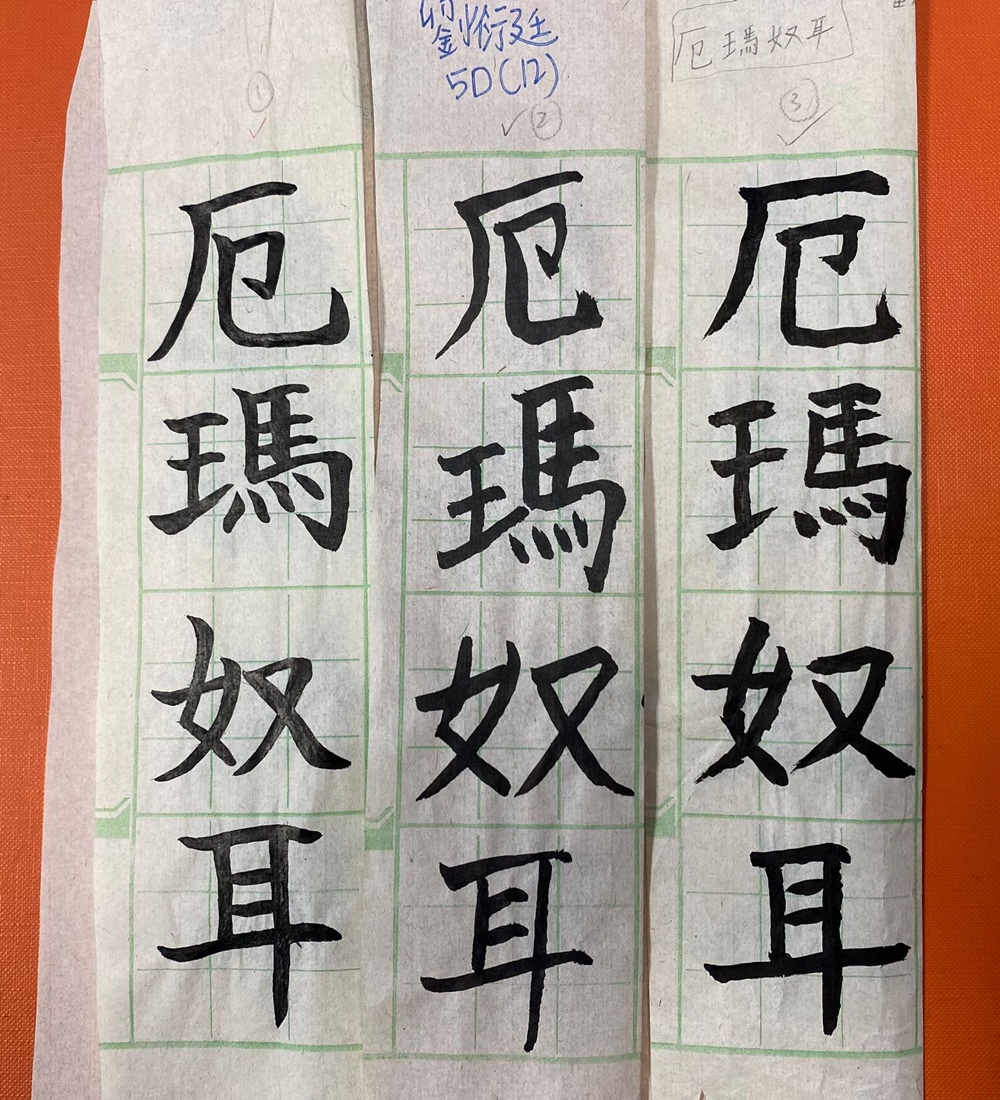 劉衍廷
5D(12)
厄瑪奴耳
①
②
③
厄瑪奴耳
厄瑪奴耳
厄瑪奴耳